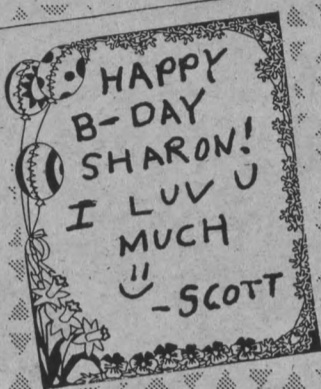 HAPPY
B-DAY
SHARON!
I LUV U
MUCH
-SCOTT